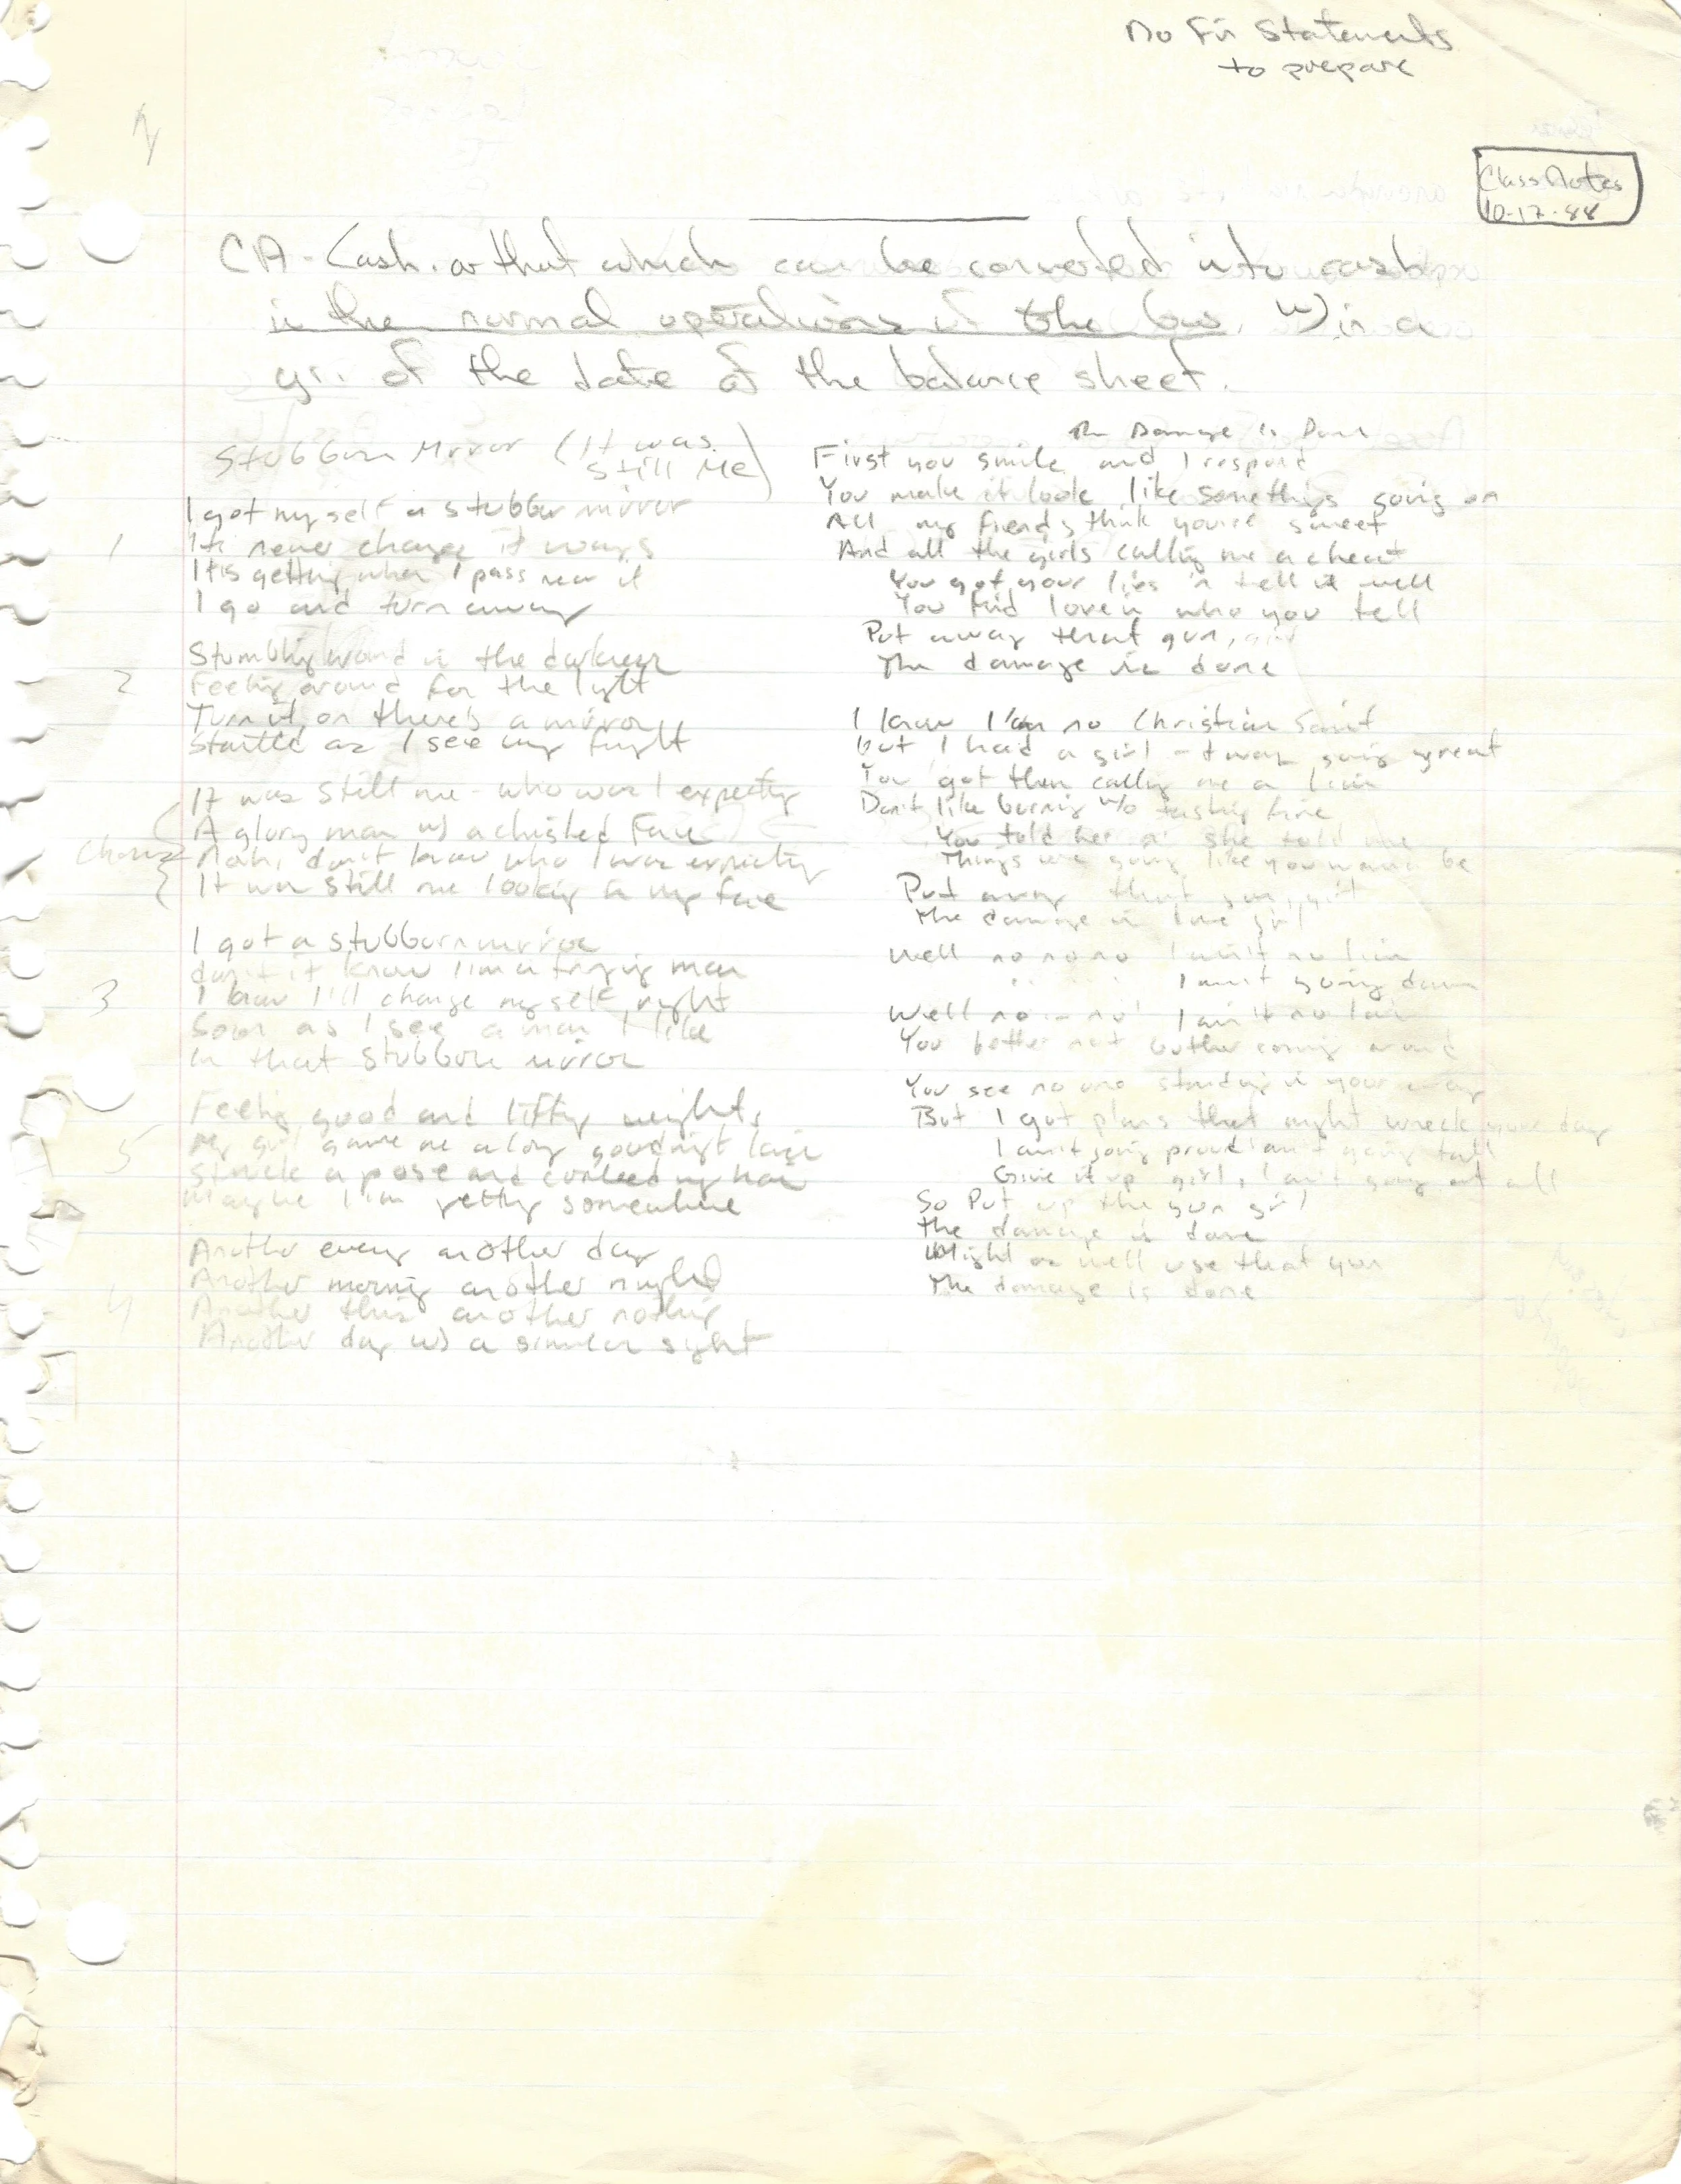 No Fin Statements
to prepare
Class Notes
10-17-88
CA - Cash. or that which can be converted into cash
in the normal operations of the bus. w)in a
yr. of the date of the balance sheet.
Stubborn Mirror (It was
still Me)
I got myself a stubborn mirror
1
It never change it ways
It is getting when I pass near it
I go and turn away
Stumbling around in the darkness
2
Feeling around for the light
Turn it on there's a mirror
Startled as I see my fright
It was still me - who was I expecting
A glory man w) a chisled Face
Chorus
Nah, don't know who I was expecting
It was still me looking in my face
I got a stubborn mirror
don't it know I'm a trying man
3
I know I'll change myself right
Soon as I see a man I like
In that stubborn mirror
Feeling good and lifting weights
5
My girl gave me a long goodnight
Struck a pose and my hair
Maybe I'm getting somewhere
Another every another day
Another morning another night
4
Another this another nothing
Another day w) a similar sight
The Damage Is Done
First you smile and I respond
You make it look like something's going on
All my friends think you're sweet
And all the girls calling me a cheat
You got your lies 'n tell it well
You find love in who you tell
Put away that gun, girl
The damage is done
I know I'm no Christian Saint
but I had a girl - t was going great
You got them calling me a liar
Don't like burning w/o fire
You told her n' she told me
Things are going like you wanna be
Put away that gun, girl
The damage is done girl
Well no no no I ain't no liar
I ain't going down
Well no - no I ain't no liar
You better not bother coming around
You see no one standing in your way
But I got plans that might wreck your day
I ain't going proud ain't going tall
Give it up girl, I ain't going at all
So Put up the gun girl
the damage is done
Might as well use that gun
The damage is done